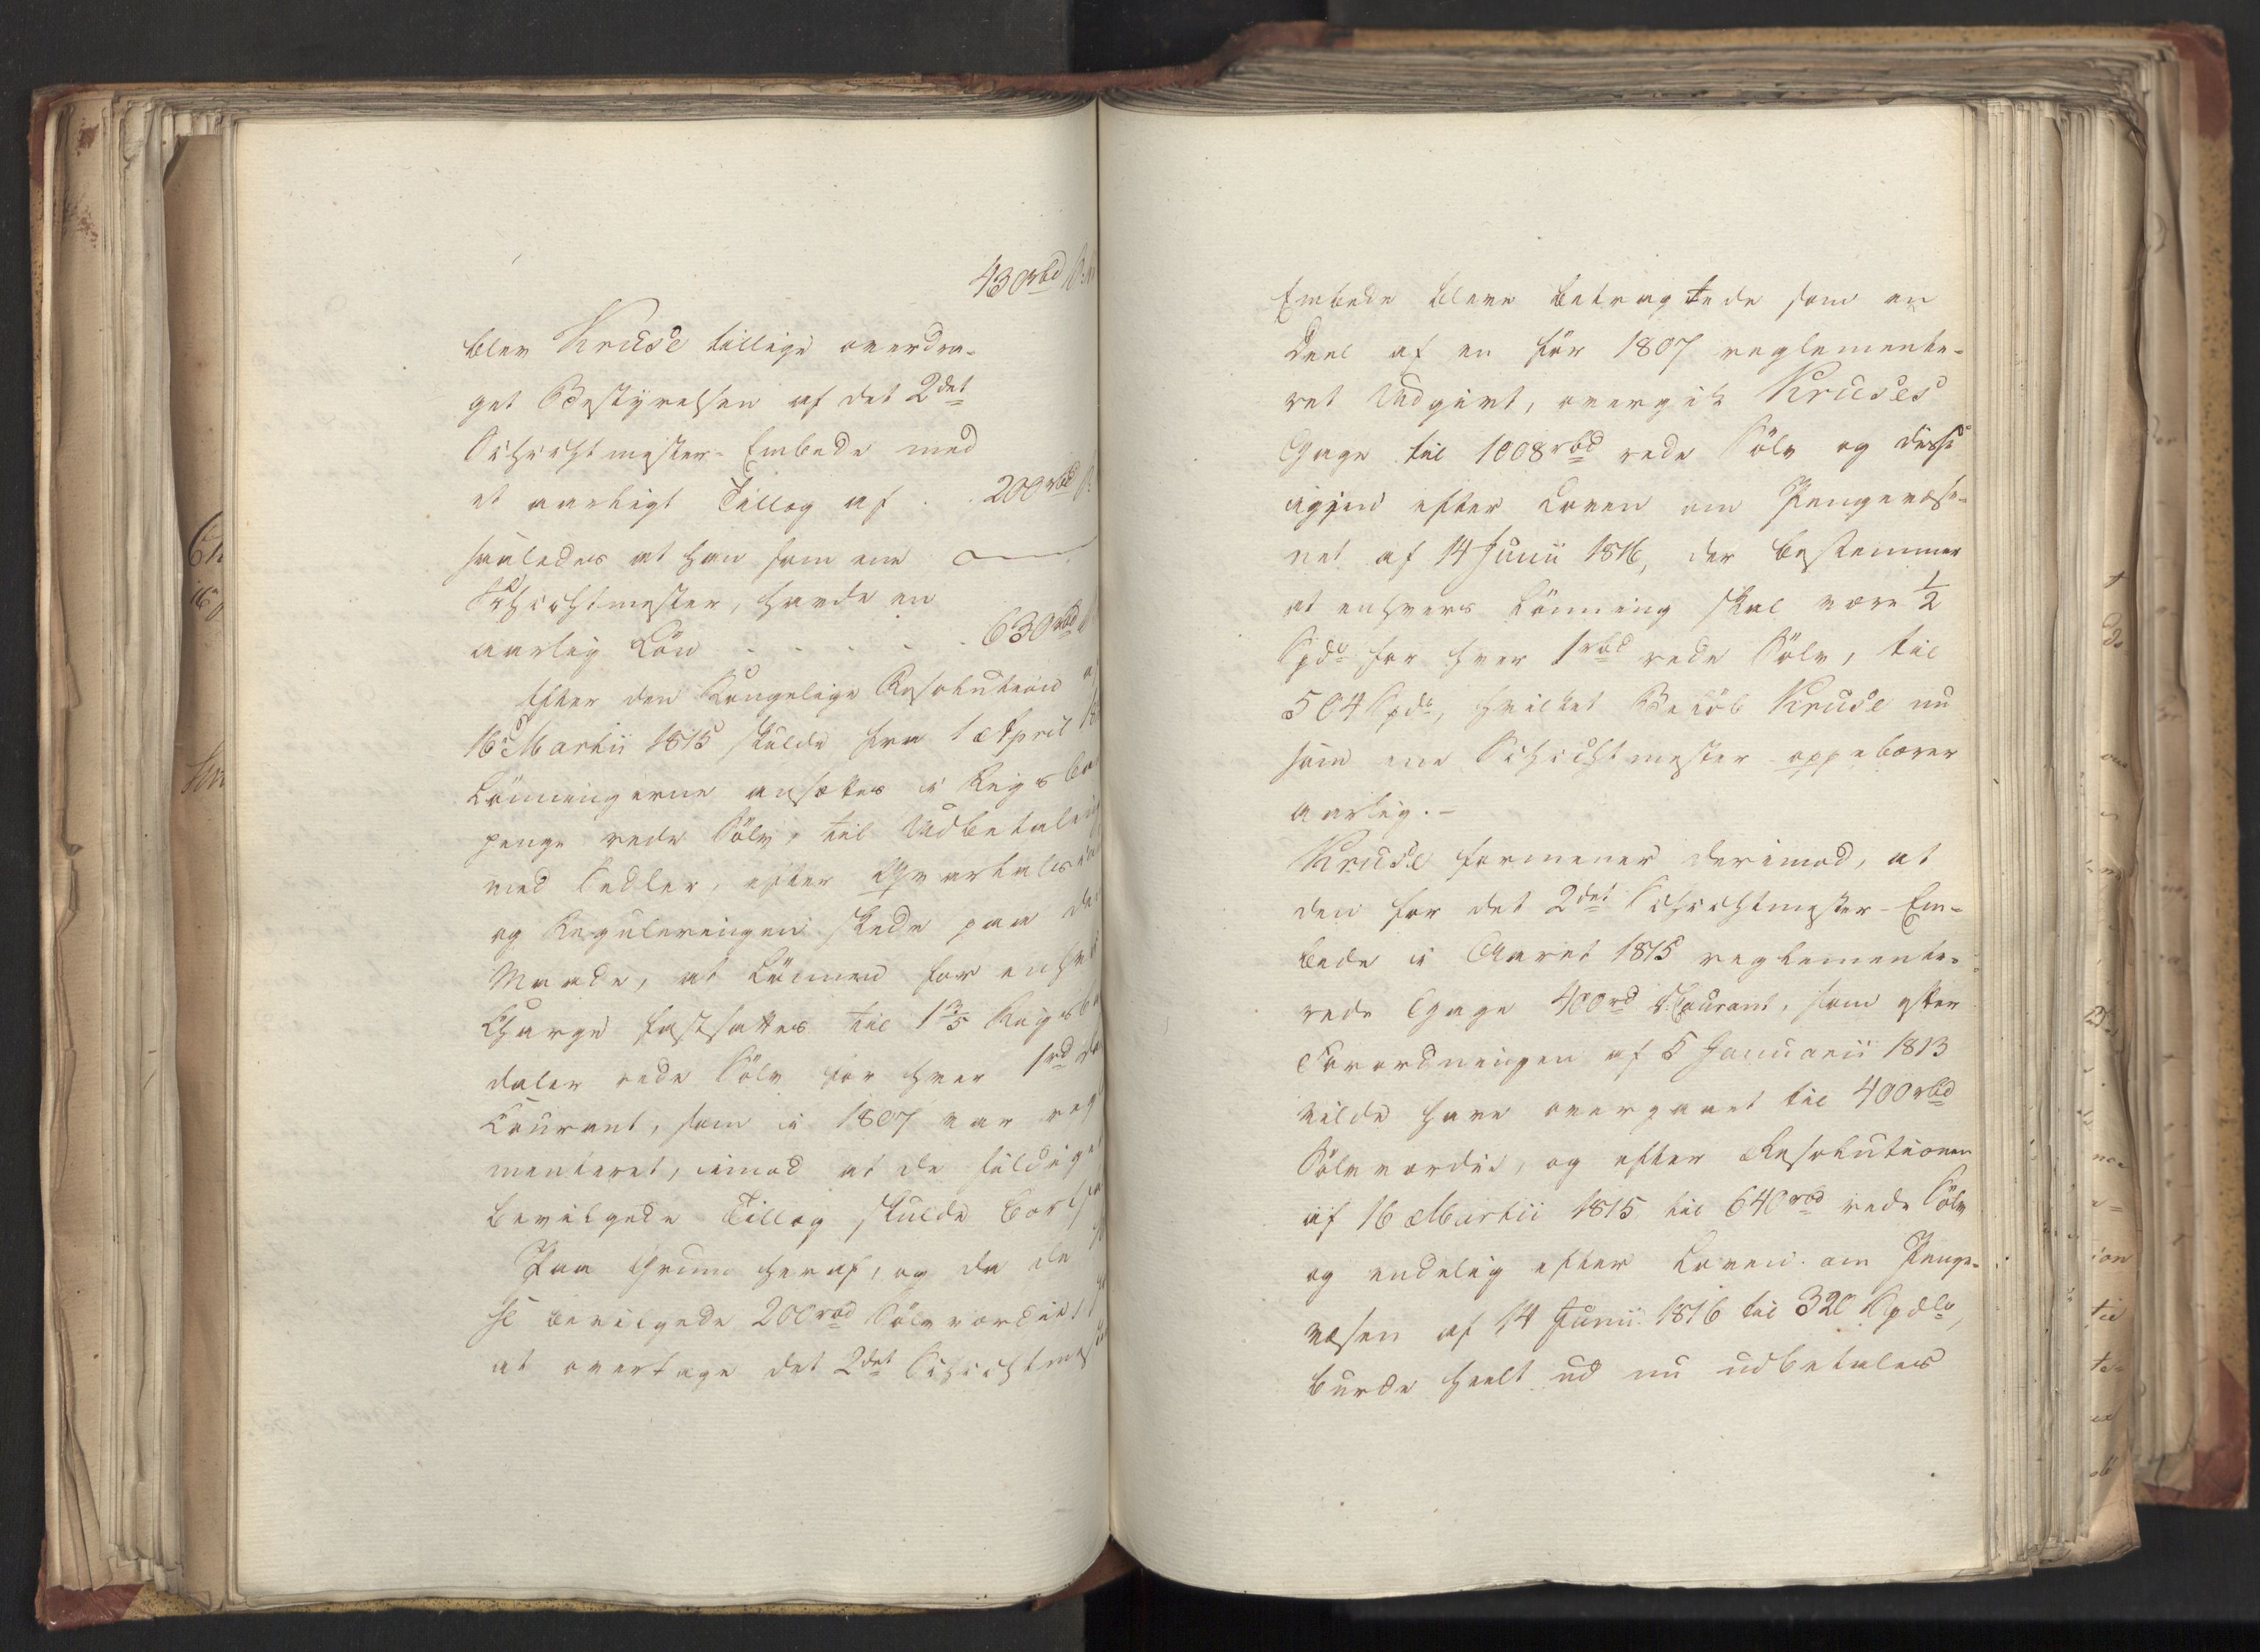 430 rbd
blev Kruse tillige overdra-
get Bestyrelsen af det 2det
Schichtmester-Embede med
et aarligt Tillæg af . . 200 rbd
saaledes at han som ene
Schichtmester, havde en
aarlig Lön . . . . . 630 rbd
Efter den Kongelige Resolution af
16 Martii 1815 skulde fra 1 April
Lönningerne ansættes i Rigsban
penge rede Sölv, til Udbetaling
med Sedler, efter Qvartals
og Reguleringen skede paa den
Maade, at Lönnen for enhver
Charge fastsattes til 1 3/5 Rigsban
daler rede Sölv for hver 1 rd
Courant, som i 1807 var regl
menteret, imod at de sildige
bevilgede Tillæg skulde bortf
Paa Grund heraf, og da de
se bevilgede 200 rbd Sölvværdie,
at overtage det 2det Schichtmester
Embede bleve betragtede som en
Deel af en för 1807 reglemente-
ret Udgivt, overgik Kruses
Gage til 1008 rbd rede Sölv og disse
igjen efter Loven om Pengevæse-
net af 14 Junii 1816, der bestemmer
at enhvers Lönning skal være 1/2
Spd. for hver 1 rbd rede Sölv, til
504 Spd., hvilket Belöb Kruse nu
som ene Schichtmester oppebærer
aarlig.-
Kruse formener derimod, at
den for det 2det Schichtmester-Em-
bede i Aaret 1815 reglemente-
rede Gage 400 rd d. Courant, som efter
Forordningen af 5 Januarii 1813
vilde have overgaaet til 400 rbd
Sölvværdie, og efter Resolutionen
af 16 Martii 1815 til 640 rbd rede Sölv
og endelig efter Loven om Penge-
væsen af 14 Junii 1816 til 320 Spdlr,
burde heelt ud nu udbetales